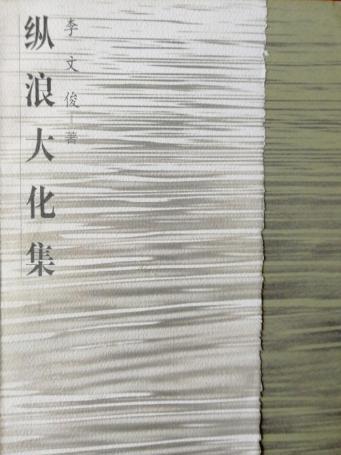 纵浪大化集
李文俊 著